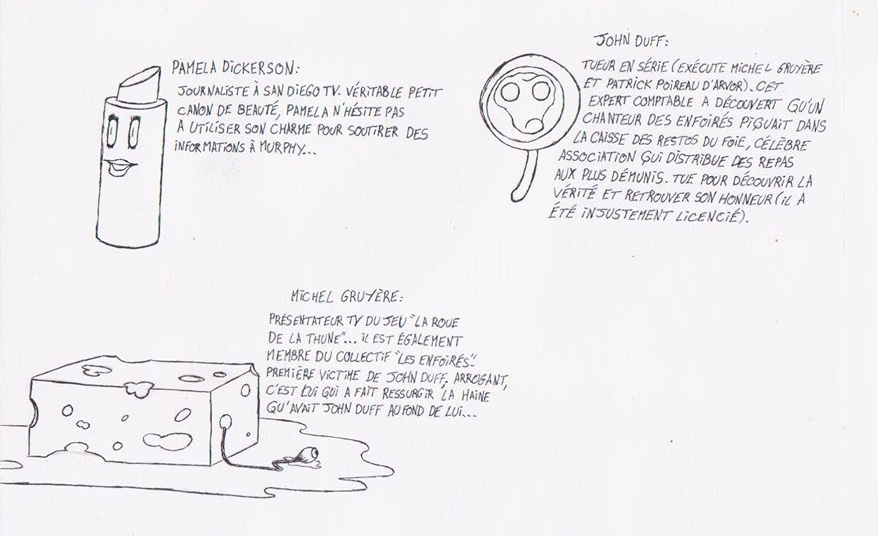 PAMELA DICKERSON:
JOURNALISTE À SAN DIEGO TV. VÉRITABLE PETIT
CANON DE BEAUTÉ, PAMELA N'HÉSITE PAS
À UTILISER SON CHARME POUR SOUTIRER DES
INFORMATIONS À MURPHY...
JOHN DUFF:
TUEUR EN SÉRIE (EXÉCUTE MICHEL GRUYÈRE
ET PATRICK POIREAU D'ARVOR). CET
EXPERT COMPTABLE A DÉCOUVERT QU'UN
CHANTEUR DES ENFOIRÉS PIQUAIT DANS
LA CAISSE DES RESTOS DU FOIE, CÉLÈBRE
ASSOCIATION QUI DISTRIBUE DES REPAS
AUX PLUS DÉMUNIS. TUE POUR DÉCOUVRIR LA
VÉRITÉ ET RETROUVER SON HONNEUR (IL A
ÉTÉ INJUSTEMENT LICENCIÉ).
MICHEL GRUYÈRE:
PRÉSENTATEUR TV DU JEU "LA ROUE
DE LA THUNE"... IL EST ÉGALEMENT
MEMBRE DU COLLECTIF "LES ENFOIRÉS".
PREMIÈRE VICTIME DE JOHN DUFF. ARROGANT,
C'EST LUI QUI A FAIT RESSURGIR LA HAINE
QU'AVAIT JOHN DUFF AU FOND DE LUI...